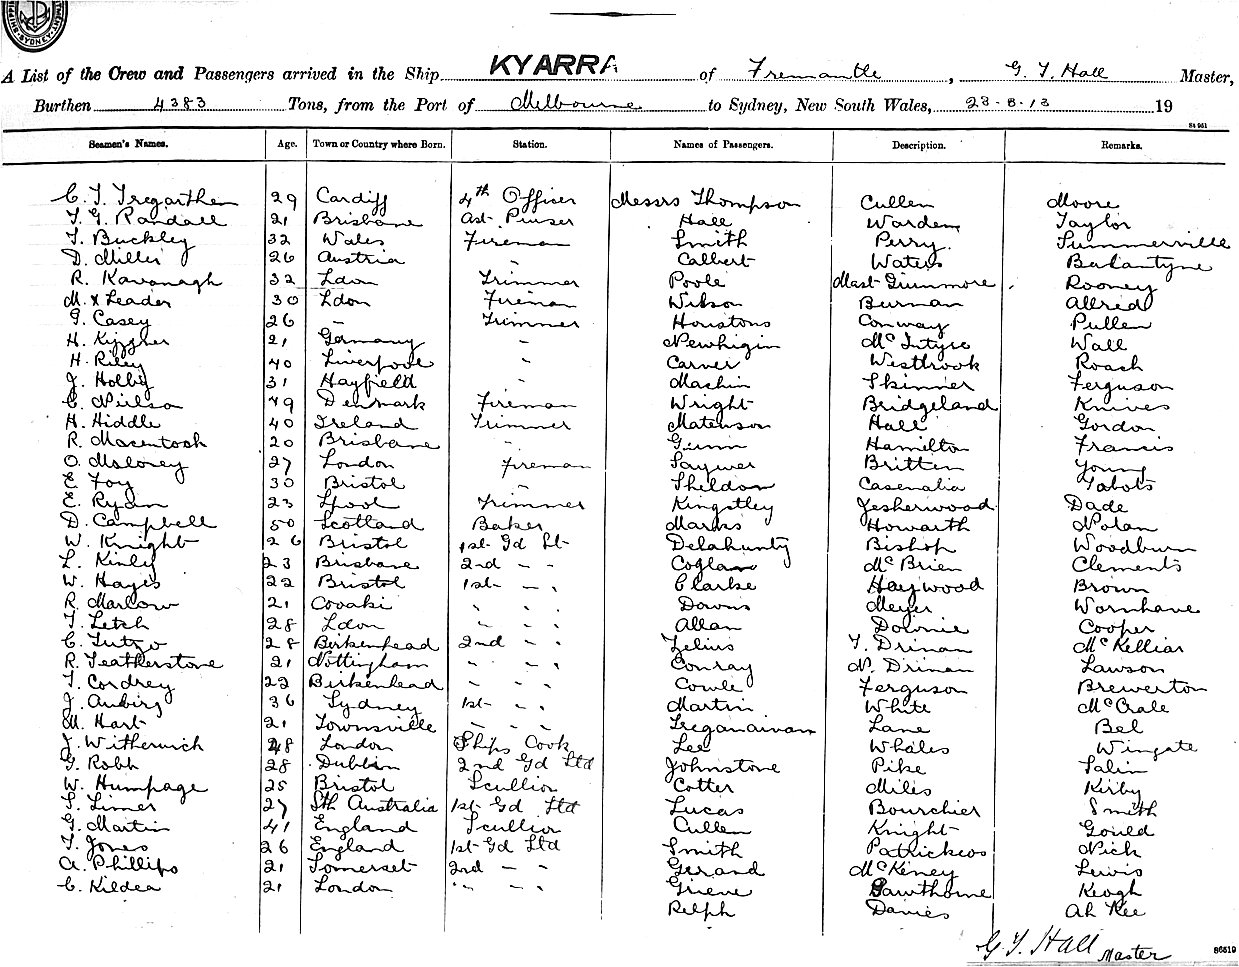 SYDNEY
A List of the Crew and Passengers arrived in the Ship KYARRA of Fremantle, G. T. Hall Master,
Burthen 4383 Tons, from the Port of Melbourne to Sydney, New South Wales, 23-8-13 19
Seamen's Names. Age. Town or Country where Born. Station. Names of Passengers. Description. Remarks.
C. T. Tregarthen 29 Cardiff 4th Officer Messrs Thompson Cullen Moore
T. G. Randall 21 Brisbane Ast. Purser Hall Warden Taylor
T. Buckley 32 Wales Fireman Smith Perry. Summerville
D. Miller 26 Austria " Calbert Waters Balantyne
R. Kavanagh 32 Ldon Trimmer Poole Mast Gunmore Rooney
M. Leader 30 Ldon Fireman Wilson Burman Allred
G. Casey 26 - Trimmer Houstons Conway Pullen
H. 21 Germany - Newhigin McIntyre Wall
H. Riley 40 Liverpool " Carver Westbrook Roach
J. Holly 31 Hayfield " Machin Skinner Ferguson
C. Nielson 49 Denmark Fireman Wright Bridgeland Knives
H. Hiddle 40 Ireland Trimmer Matenson Hall Gordon
R. Macentosh 20 Brisbane - Gunn Hamilton Francis
O. Maloney 27 London Fireman Saywer Britten Young
E Foy 30 Bristol " Sheldon Casenalia Tabots
E. Ryan 23 Lpool Trimmer Kingstley Yesherwood Dade
D. Campbell 50 Scotland Baker Marks Howarth Nolan
W. Knight 26 Bristol 1st Gd St Delahunty Bishop Woodburn
L. Kinly 23 Brisbane 2nd - - Coglan McBrien Clements
W. Hayes 22 Bristol 1st - - Clarke Haywood Brown
R. Marlow 21 " " " Downs Meyer Warnhane
T. Letch 28 Ldon " " " Allan Dolonie Cooper
C. Tutzo 28 Birkenhead 2nd - - Felius T. Drinan McKelliar
R. Featherstone 21 Nottingham " " " Conray N. Drinan Lawson
T. Cordrey 22 Birkenhead " " " Cowle Ferguson Brewerton
J. 36 Sydney 1st - - Martin White McCrale
M. Hart 21 Townsville - - - Treganaivan Lane Bel
J. Witherwich 48 London Ships Cook Lee Whales Wingate
G. Robb 28 Dublin 2nd Gd Std Johnstone Pike Salin
W. Humpage 25 Bristol Scullion Cotter Miles Kirby
S. Limer 27 Sth Australia 1st Gd Std Lucas Bourchier Smith
G. Martin 41 England Scullion Cullen Knight Gould
T. Jones 26 England 1st Gd Std Smith Patrickios Nick
A. Phillips 21 Somerset 2nd - - Gerand McKeney Lewis
C. Kildea 21 London " - - Griene Hawthorne Keogh
Relph Davies Ah Kee
G. T. Hall Master
86519